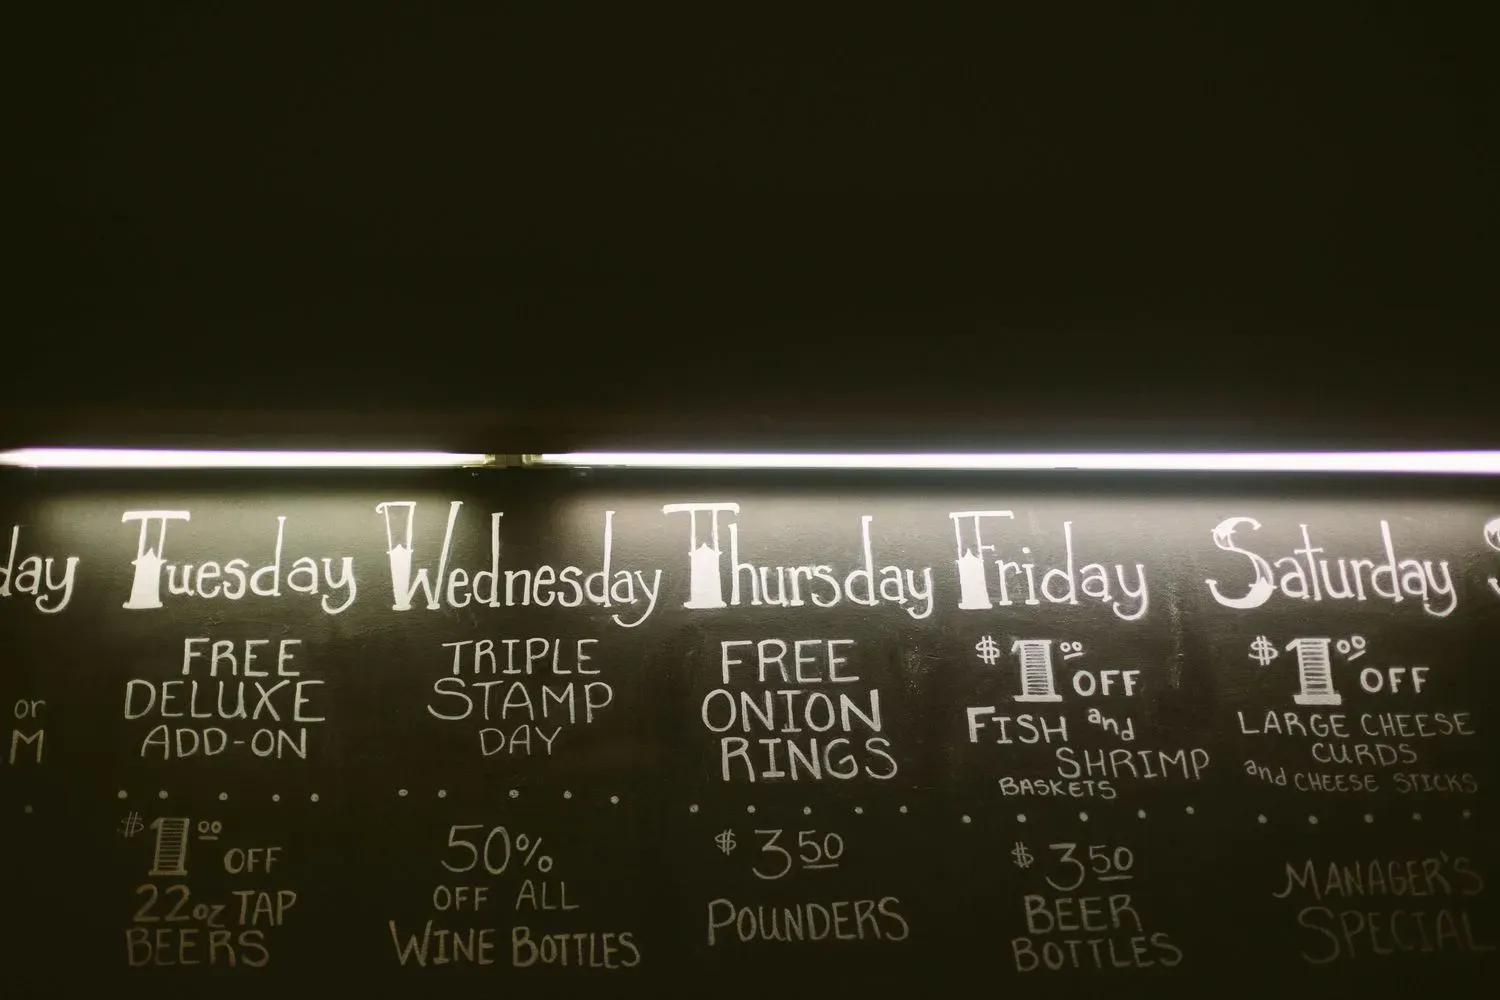 day
or
M
Tuesday
FREE
DELUXE
ADD-ON
$1.00 OFF
22oz TAP
BEERS
Wednesday
TRIPLE
STAMP
DAY
50%
OFF ALL
WINE BOTTLES
Thursday
FREE
ONION
RINGS
$3.50
POUNDERS
Friday
$1.00 OFF
FISH and
SHRIMP
BASKETS
$3.50
BEER
BOTTLES
Saturday
$1.00 OFF
LARGE CHEESE
CURDS
and CHEESE STICKS
MANAGER'S
SPECIAL
S